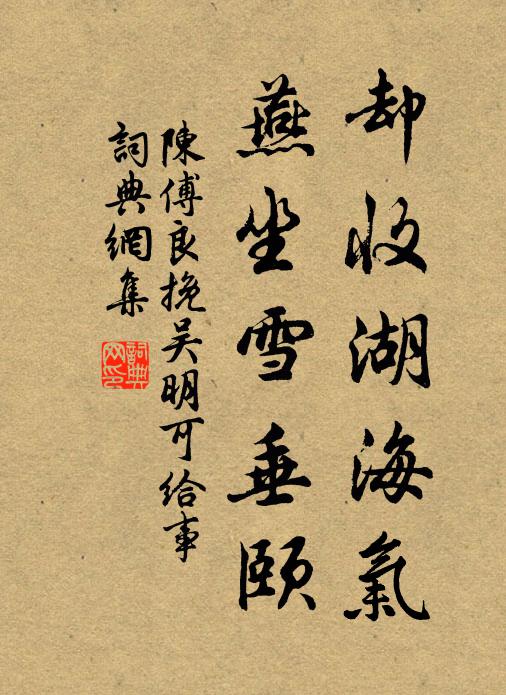 却收湖海氣
燕坐雪垂頤
陳傅良挽吴明可給事
詞典網集
詞典網印